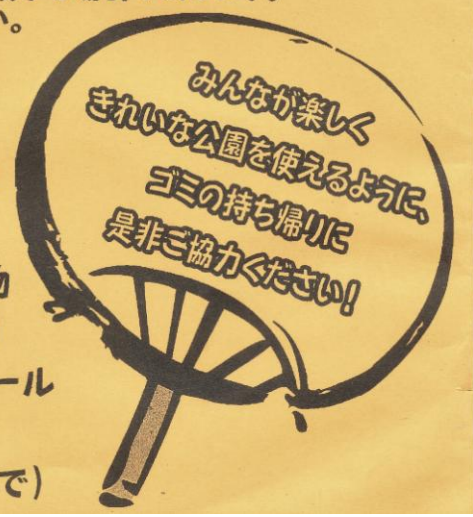 い。
みんなが楽しく
きれいな公園を使えるように、
ゴミの持ち帰りに
是非ご協力ください！
ール
で）